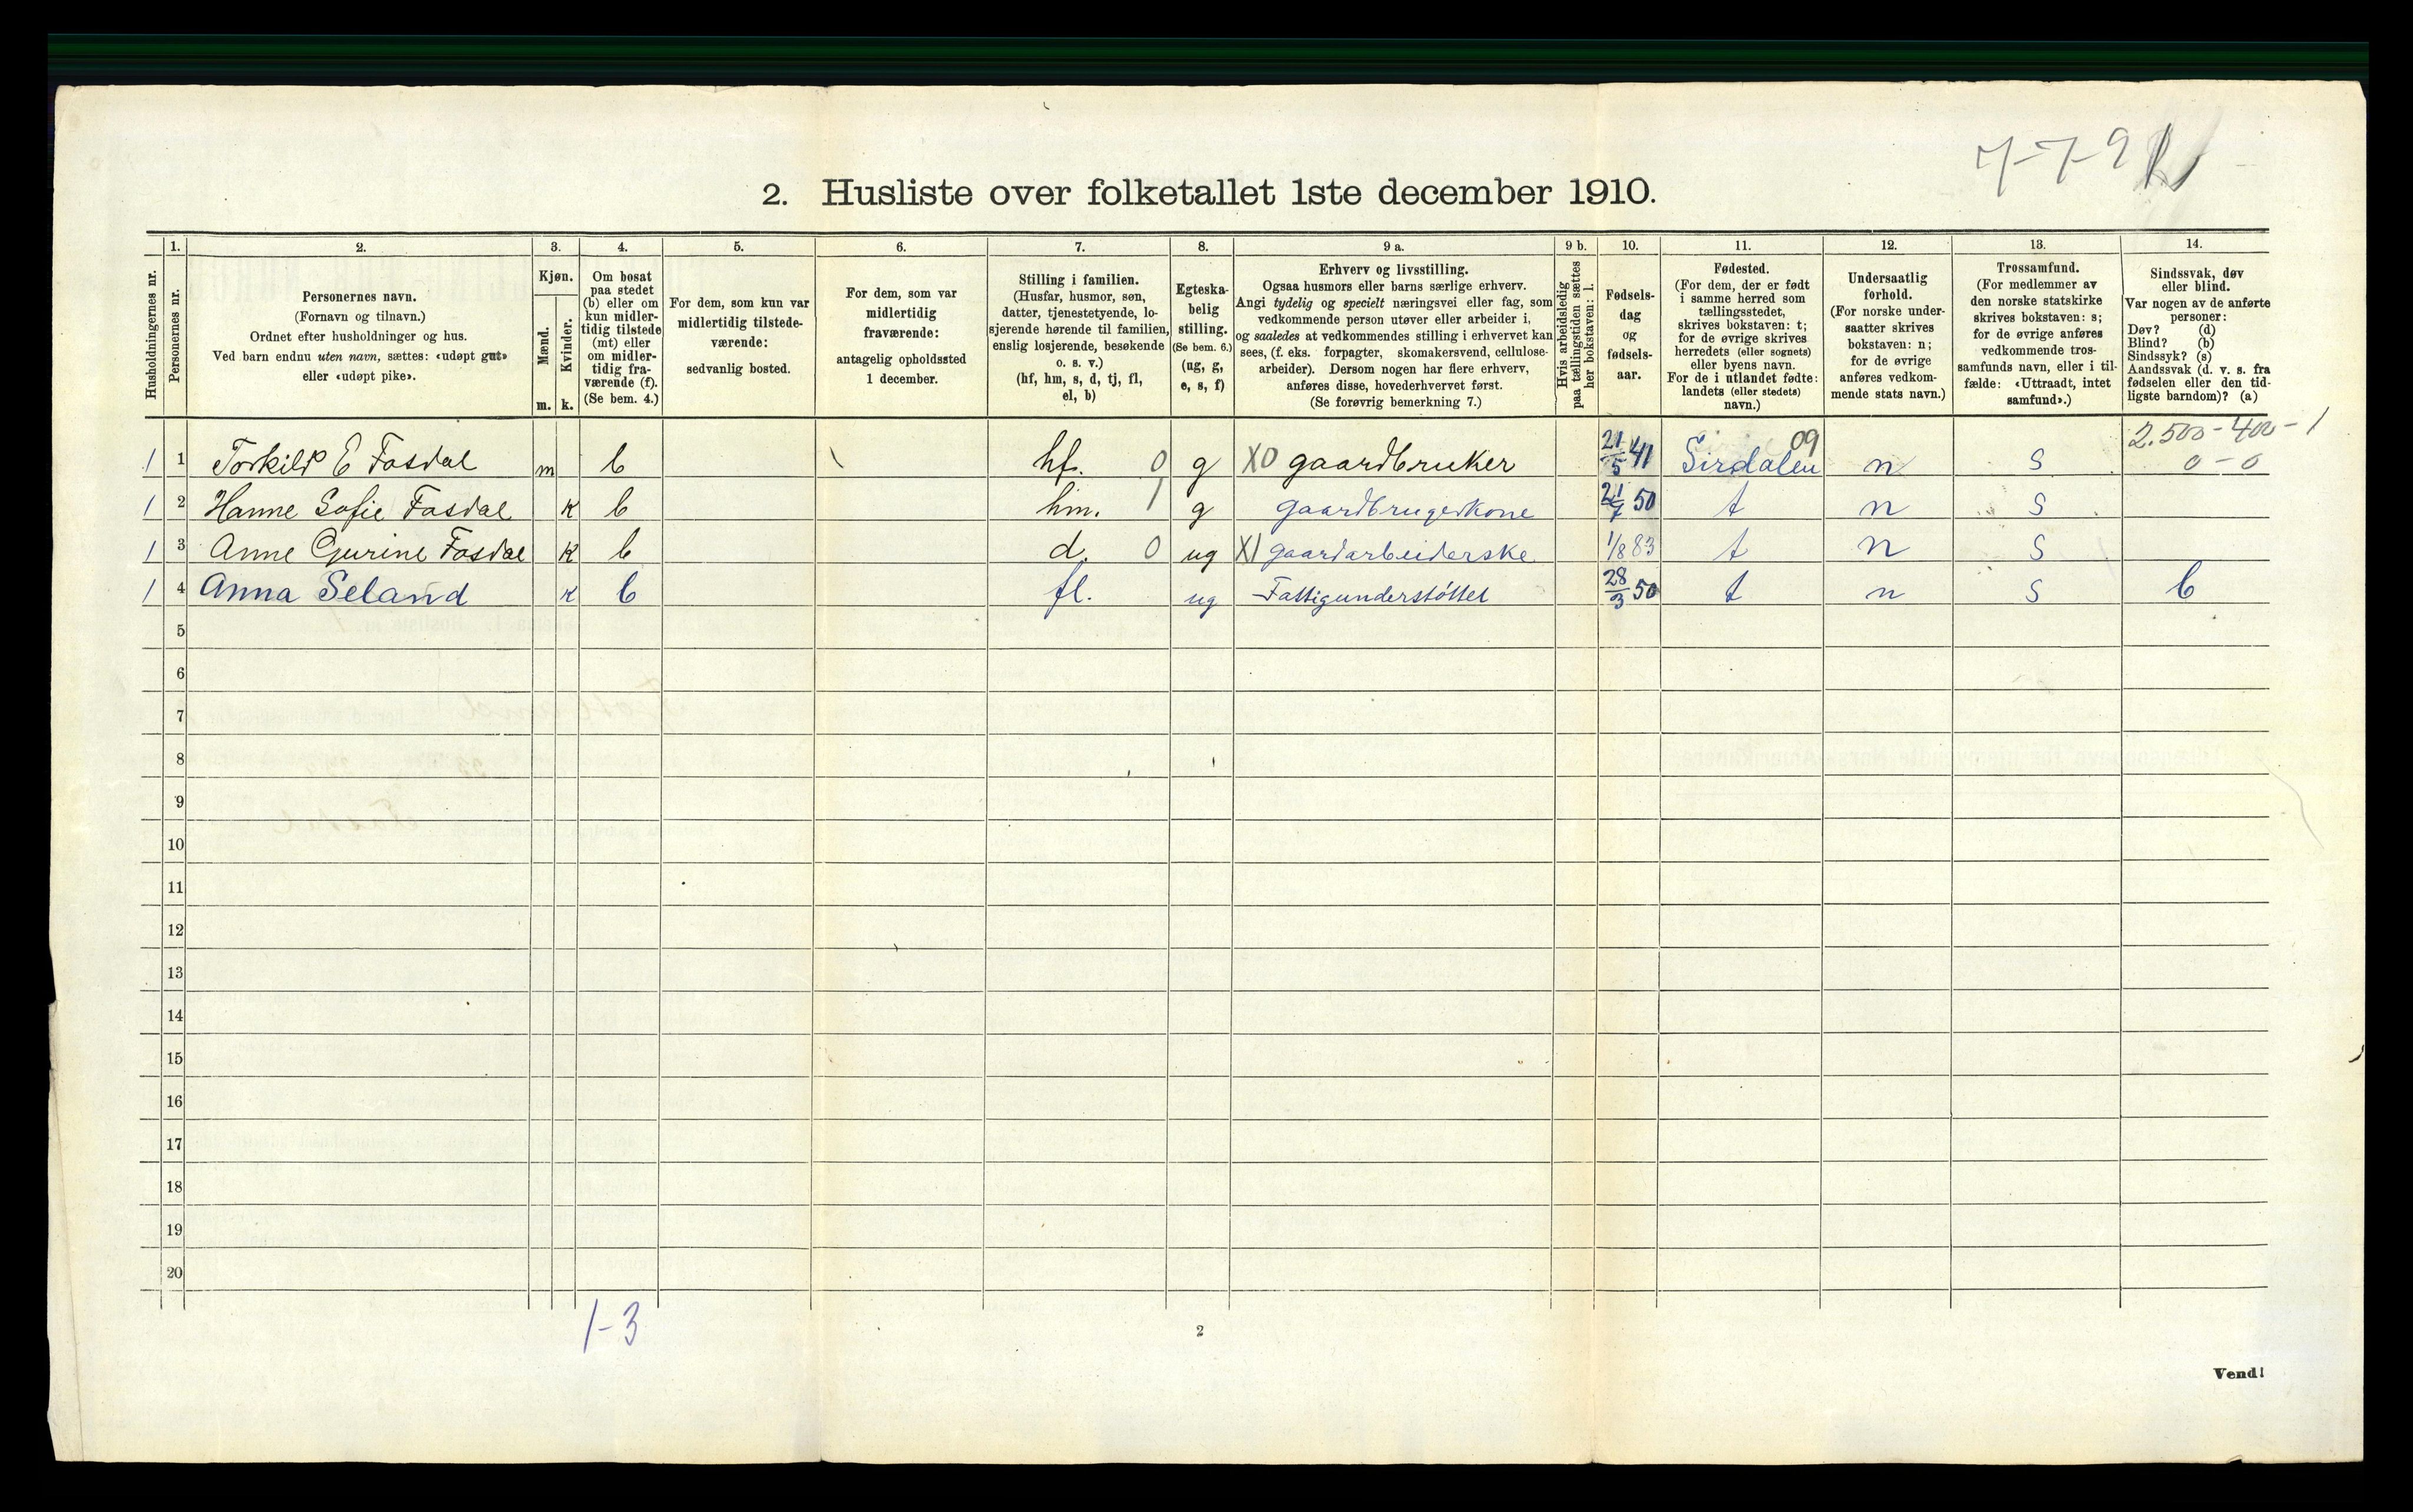 7-7-9
2. Husliste over folketallet 1ste december 1910.
Husholdningernes nr.
1.
Personernes nr.
2.
Personernes navn.
(Fornavn og tilnavn.)
Ordnet efter husholdninger og hus.
Ved barn endnu uten navn, sættes: «udøpt gut»
eller «udøpt pike».
3.
Kjøn.
Mænd.
Kvinder.
m. k.
4.
Om bosat
paa stedet
(b) eller om
kun midler-
tidig tilstede
(mt) eller
om midler-
tidig fra-
værende (f).
(Se bem. 4.)
5.
For dem, som kun var
midlertidig tilstede-
værende:
sedvanlig bosted.
6.
For dem, som var
midlertidig
fraværende:
antagelig opholdssted
1 december.
7.
Stilling i familien.
(Husfar, husmor, søn,
datter, tjenestetyende, lo-
sjerende hørende til familien,
enslig losjerende, besøkende
o. s. v.)
(hf, hm, s, d, tj, fl,
el, b)
8.
Egteska-
belig
stilling.
(Se bem. 6.)
(ug, g,
e, s, f)
9 a.
Erhverv og livsstilling.
Ogsaa husmors eller barns særlige erhverv.
Angi tydelig og specielt næringsvei eller fag, som
vedkommende person utøver eller arbeider i,
og saaledes at vedkommendes stilling i erhvervet kan
sees, (f. eks. forpagter, skomakersvend, cellulose-
arbeider). Dersom nogen har flere erhverv,
anføres disse, hovederhvervet først.
(Se forøvrig bemerkning 7.)
9 b.
Hvis arbeidsledig
paa tællingstiden sættes
her bokstaven: l.
10.
Fødsels-
dag
og
fødsels-
aar.
11.
Fødested.
(For dem, der er født
i samme herred som
tællingsstedet,
skrives bokstaven: t;
for de øvrige skrives
herredets (eller sognets)
eller byens navn.
For de i utlandet fødte:
landets (eller stedets)
navn.)
12.
Undersaatlig
forhold.
(For norske under-
saatter skrives
bokstaven: n;
for de øvrige
anføres vedkom-
mende stats navn.)
13.
Trossamfund.
(For medlemmer av
den norske statskirke
skrives bokstaven: s;
for de øvrige anføres
vedkommende tros-
samfunds navn, eller i til-
fælde: «Uttraadt, intet
samfund».)
14.
Sindssvak, døv
eller blind.
Var nogen av de anførte
personer:
Døv? (d)
Blind? (b)
Sindssyk? (s)
Aandssvak (d. v. s. fra
fødselen eller den tid-
ligste barndom)? (a)
1 1 Torkild E Fosdal m b hf. 0 g X0 gaardbruker 21/5 41 Sirdalen 09 n s 2.500-400-1 0-0
1 2 Hanne Sofie Fosdal k b hm. 1 g gaardbrugerkone 21/7 50 t n s
1 3 Anne Gurine Fosdal k b d. 0 ug X1 gaardarbeiderske 1/8 83 t n s
1 4 Anna Seland k b fl. ug Fattigunderstøttet 28/3 50 t n s b
5
6
7
8
9
10
11
12
13
14
15
16
17
18
19
20
1-3
2
Vend!